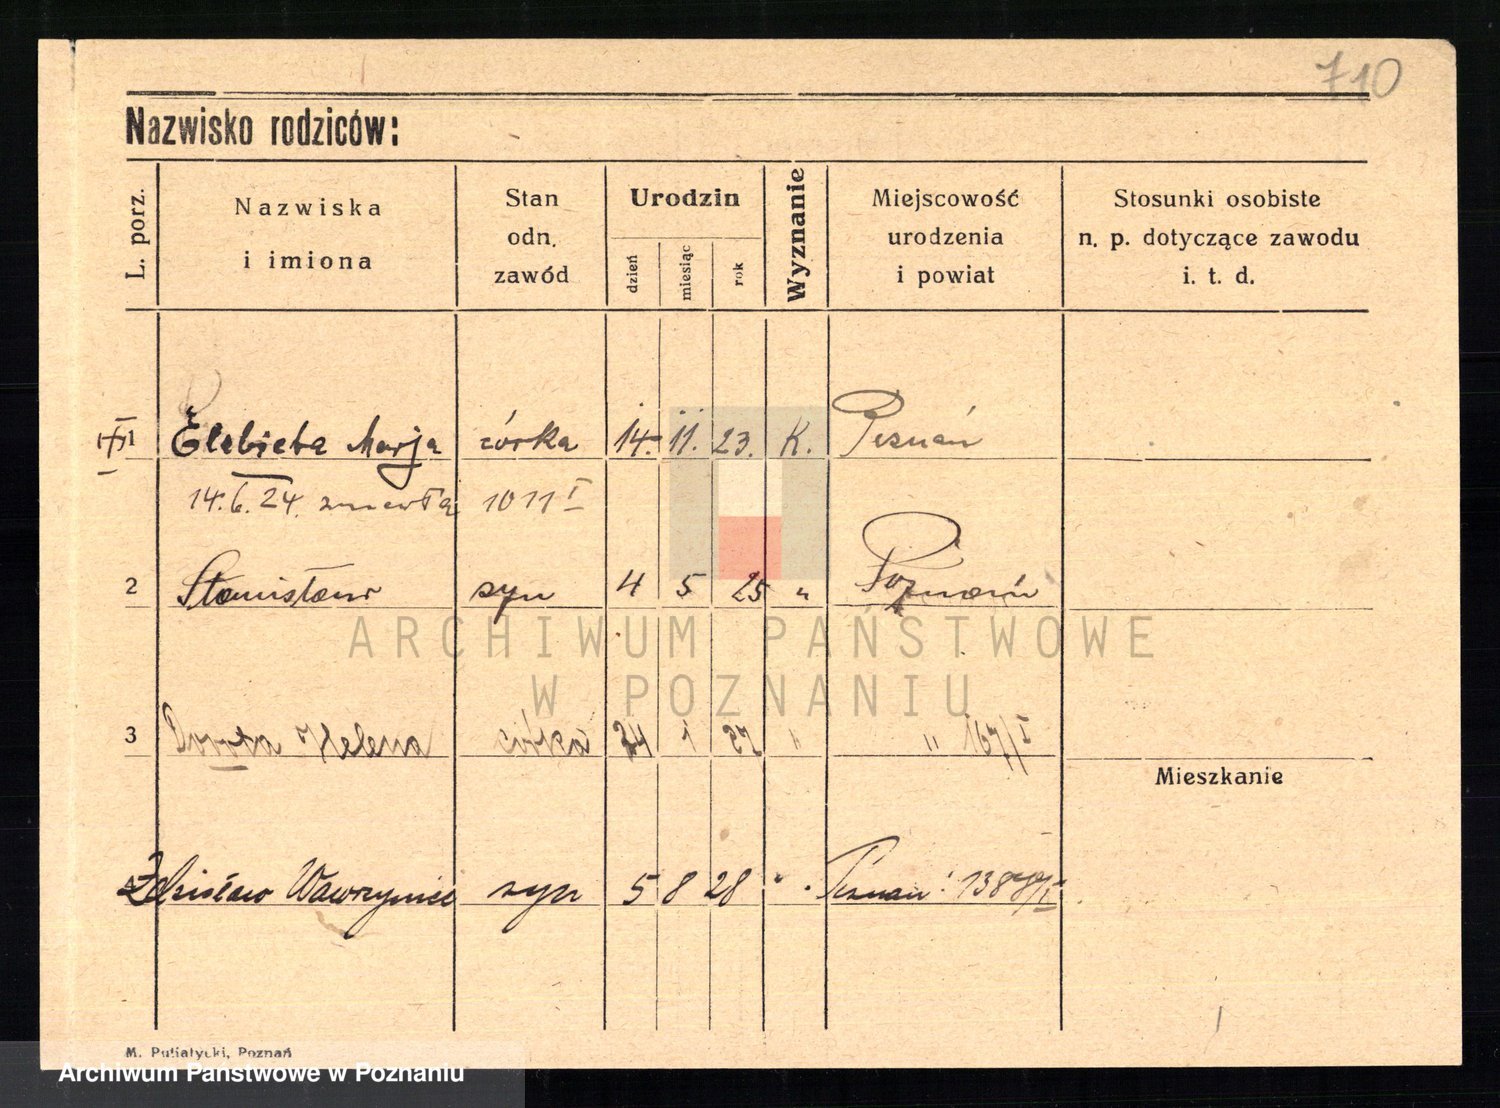 710
Nazwisko rodziców:
L. porz.
Nazwiska
i imiona
Stan
odn.
zawód
Urodzin
dzień
miesiąc
rok
Wyznanie
Miejscowość
urodzenia
i powiat
Stosunki osobiste
n. p. dotyczące zawodu
i. t. d.
1 Elżbieta Marja córka 14. 11. 23. K. Poznań
14.6.24. zmarła 1011 I
2 Stanisław syn 4 5 25 " Poznań
ARCHIWUM PAŃSTWOWE
W POZNANIU
3 Dorota Helena córka 24 1 27 " " 167/I
Mieszkanie
Zdzisław Wawrzyniec syn 5 8 28 " Poznań
M. Putiatycki, Poznań
Archiwum Państwowe w Poznaniu